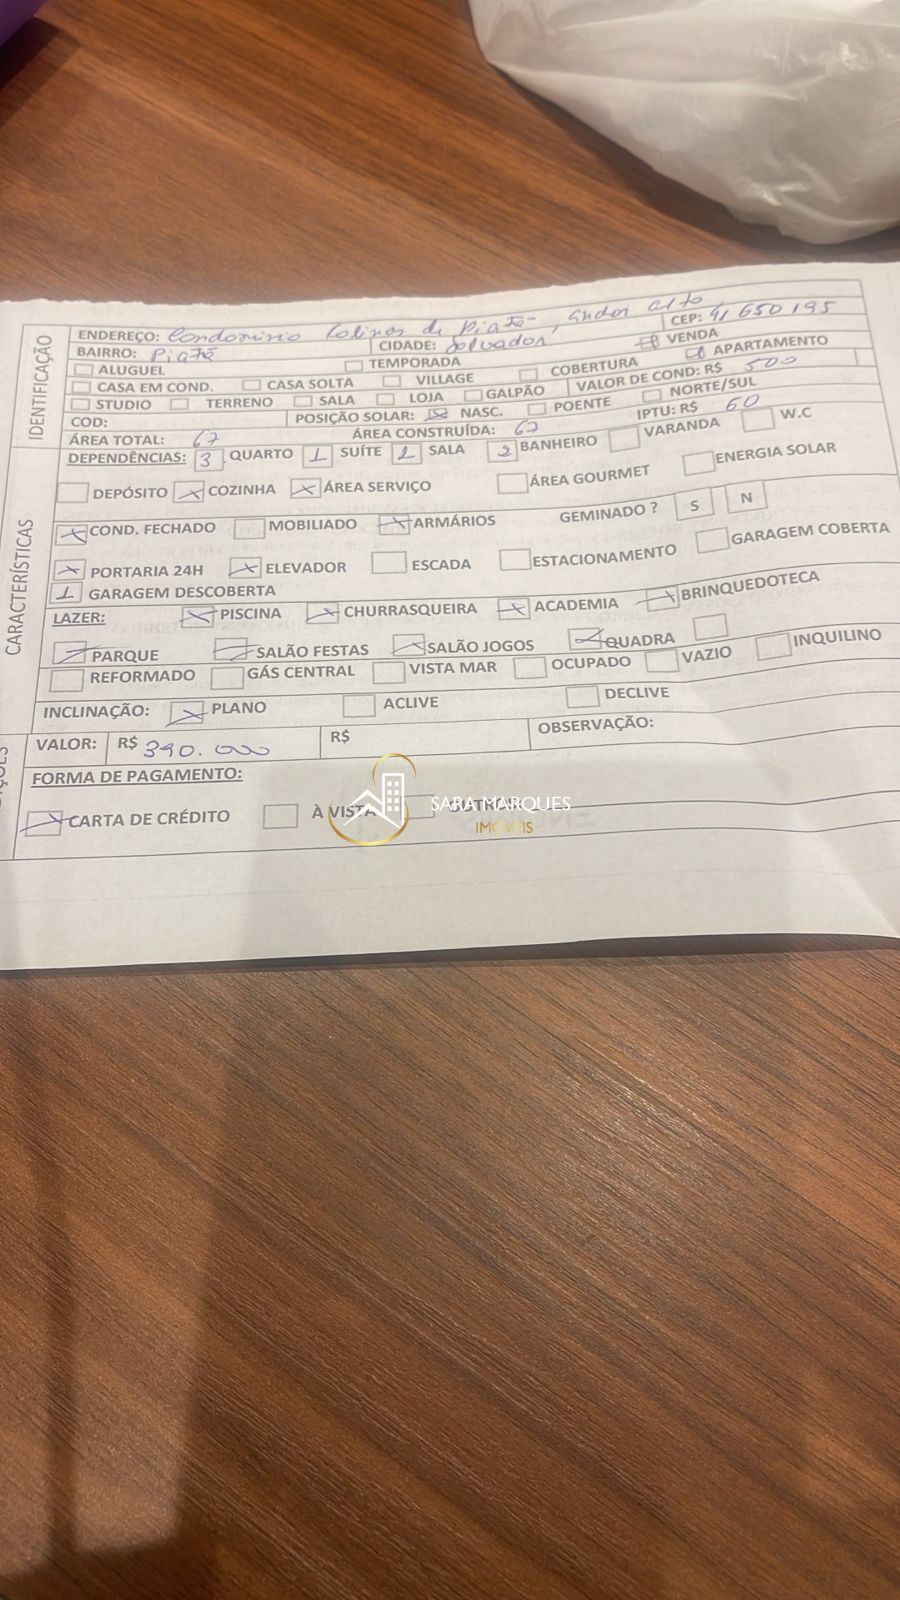 IDENTIFICAÇÃO
ENDEREÇO: Condominio Colinas de Piatã, andar alto
BAIRRO: Piatã CIDADE: Salvador CEP: 41650195
ALUGUEL TEMPORADA VENDA
CASA EM COND. CASA SOLTA VILLAGE COBERTURA APARTAMENTO
STUDIO TERRENO SALA LOJA GALPÃO VALOR DE COND: R$ 500
COD: POSIÇÃO SOLAR: NASC. POENTE NORTE/SUL
ÁREA TOTAL: 67 ÁREA CONSTRUÍDA: 67 IPTU: R$ 60
CARACTERÍSTICAS
DEPENDÊNCIAS: 3 QUARTO 1 SUÍTE 2 SALA 2 BANHEIRO VARANDA W.C
DEPÓSITO X COZINHA X ÁREA SERVIÇO ÁREA GOURMET ENERGIA SOLAR
X COND. FECHADO MOBILIADO X ARMÁRIOS GEMINADO ? S N
X PORTARIA 24H X ELEVADOR ESCADA ESTACIONAMENTO GARAGEM COBERTA
1 GARAGEM DESCOBERTA
LAZER: X PISCINA X CHURRASQUEIRA X ACADEMIA X BRINQUEDOTECA
PARQUE SALÃO FESTAS SALÃO JOGOS QUADRA
REFORMADO GÁS CENTRAL VISTA MAR OCUPADO VAZIO INQUILINO
INCLINAÇÃO: X PLANO ACLIVE DECLIVE
VALOR: R$ 390.000 R$ OBSERVAÇÃO:
FORMA DE PAGAMENTO:
X CARTA DE CRÉDITO À VISTA
SARA MARQUES
IMÓVEIS